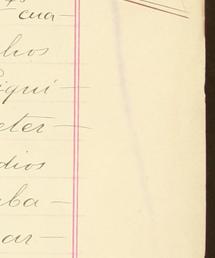 cua-
lhos
iqui-
eter-
dios
ba-
ar-